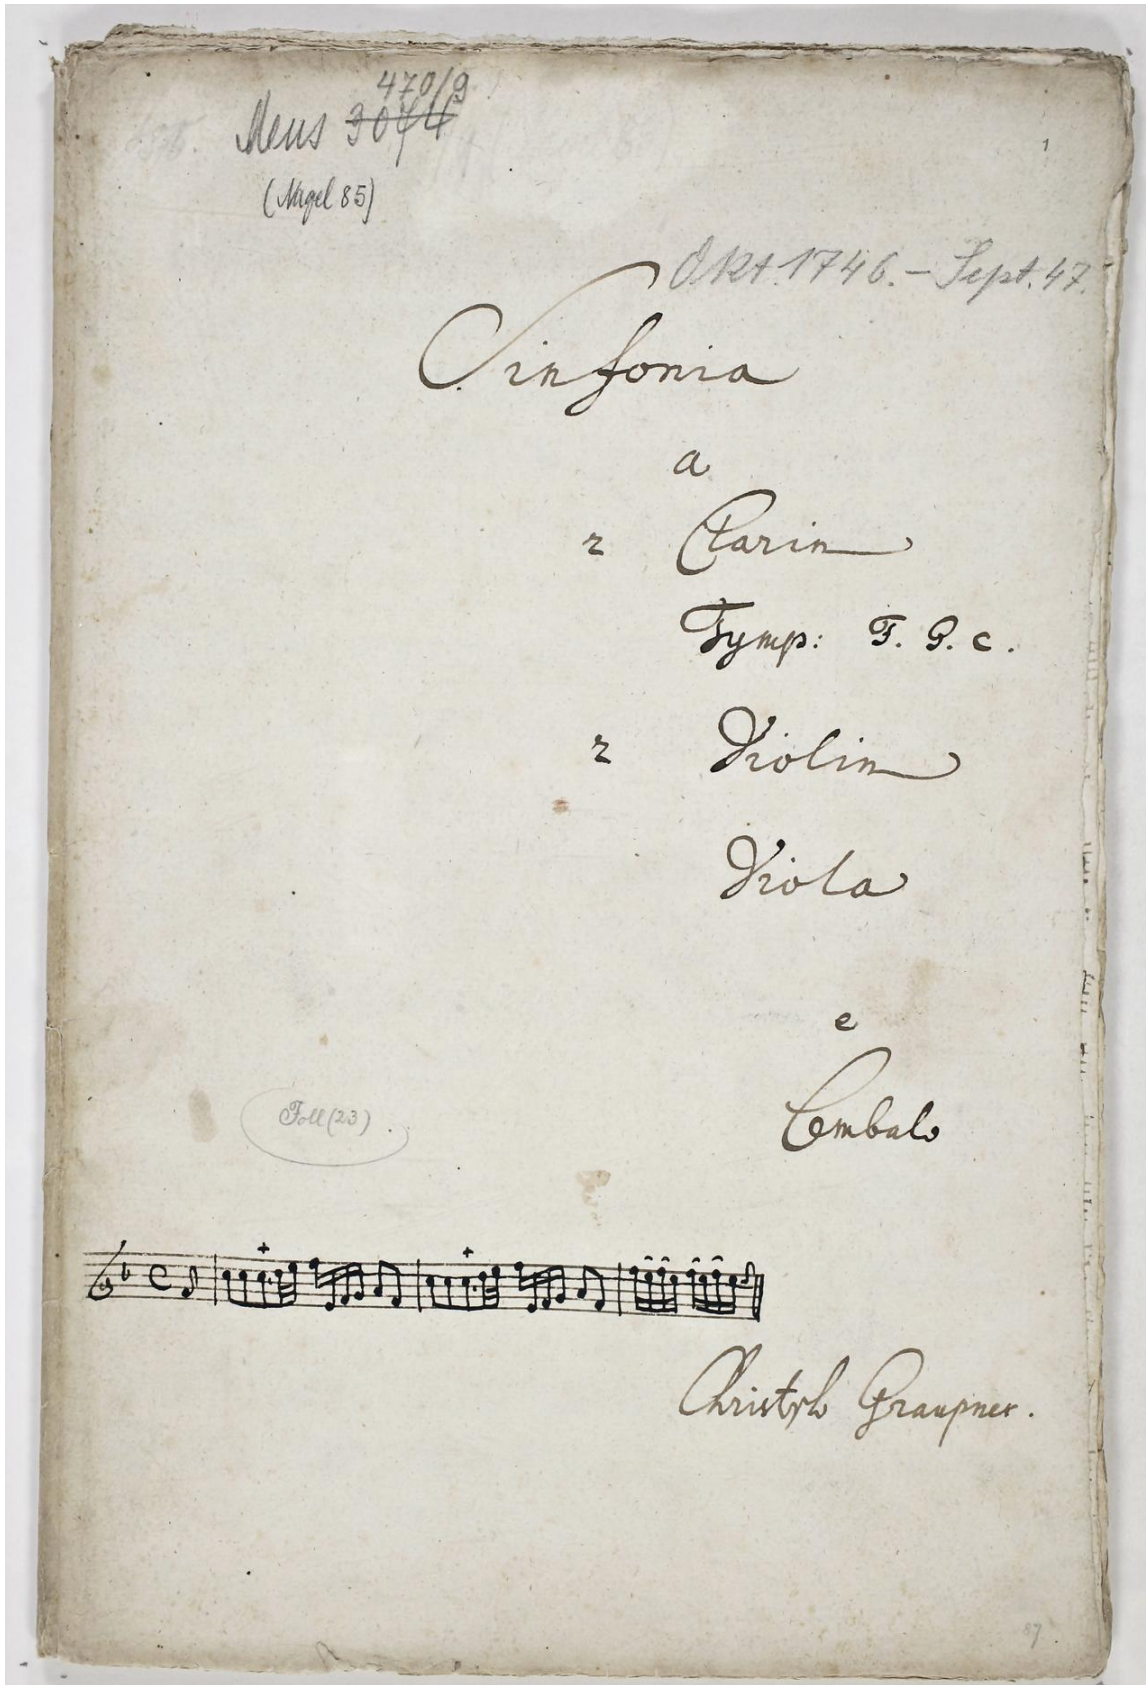 470/9
Mus 3074
(Nagel 85)
1
Okt. 1746. – Sept. 47.
Sinfonia
a
2 Clarin
Tymp: F. G. c.
2 Violin
Viola
e
Cembalo
Foll (23).
Christoph Graupner.
87